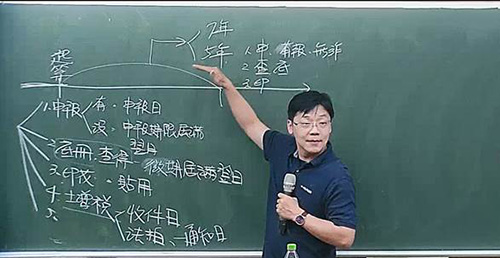 起
算
7年
5年 1.申.有報.無詐
2.查底
3.印
1.申報 有.申報日
沒.申報期限屆滿
翌日
2.底冊.查得 徵期屆滿翌日
3.印花.貼用
4.土增稅 收件日
5. 法拍.通知日